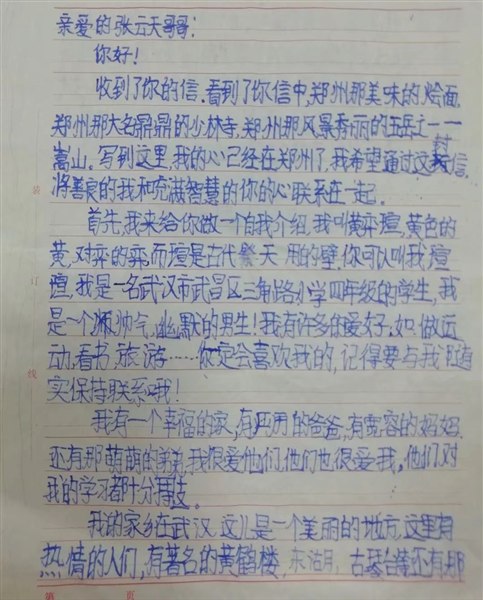 亲爱的张云天哥哥：
你好！
收到了你的信，看到了你信中，郑州那美味的烩面，
郑州那大名鼎鼎的少林寺，郑州那风景秀丽的五岳之一—
嵩山。写到这里，我的心已经在郑州了，我希望通过这封信，
将善良的我和充满智慧的你的心联系在一起。
首先，我来给你做一个自我介绍，我叫黄弈瑄，黄色的
黄，对弈的弈，而瑄是古代祭天用的璧，你可以叫我瑄
瑄，我是一名武汉市武昌区三角路小学四年级的学生，我
是一个帅气、幽默的男生！我有许多的爱好，如：做运
动、看书、旅游……你定会喜欢我的，记得要与我
实保持联系哦！
我有一个幸福的家，有的爸爸，有宽容的妈妈，
还有那萌萌的弟弟，我很爱他们，他们也很爱我，他们对
我的学习都十分。
我的家乡在武汉，这儿是一个美丽的地方，这里有
热情的人们，有著名的黄鹤楼，东沽月，古琴台等还有那
装
订
线
第 页